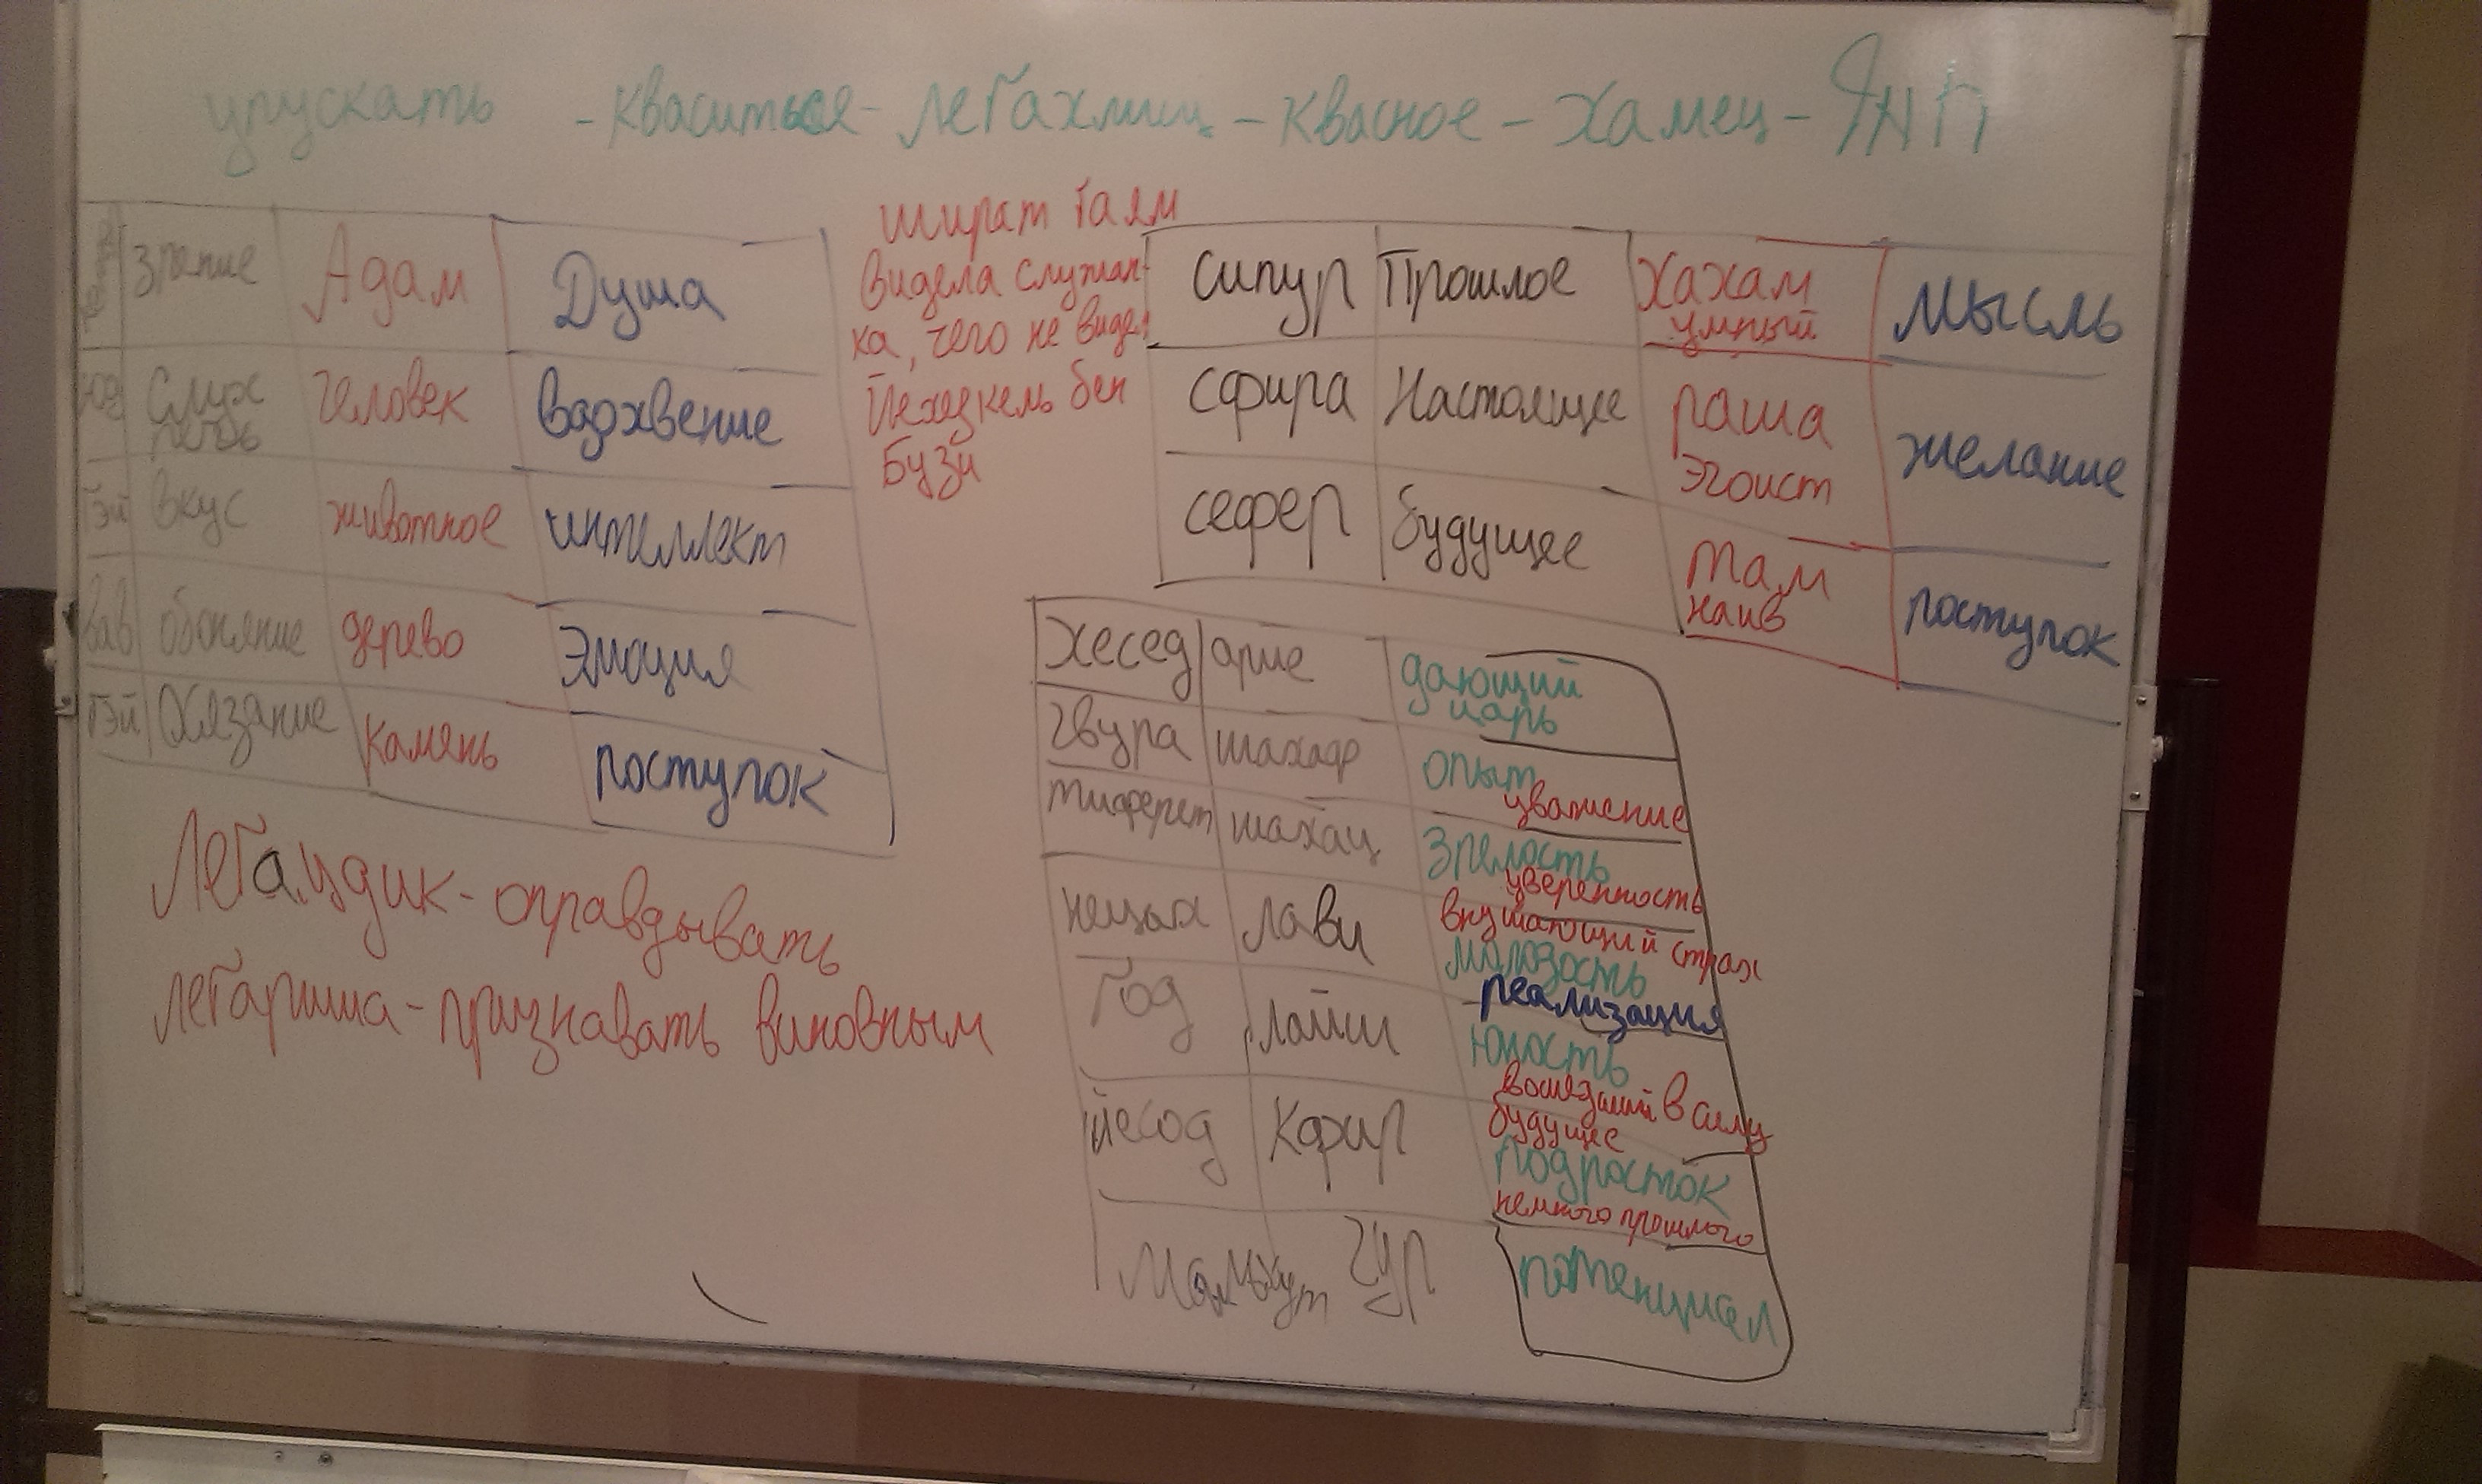 упускать - кваситься - легахмиц - квасное - хамец - ЯНП
зрение Адам Душа
Слух речь человек вдохвение
гэй вкус животное интеллект
вав обоняние дерево Эмоция
гэй Осязание камень поступок
шират гаям
видела служан-
ка, чего не видел
Йехезкель бен
Бузи
сипур Прошлое Хахам умный мысль
сфира Настоящее раша эгоист желание
сефер будущее там наив поступок
хесед арие дающий царь
гвура шахаф опыт уважение
тиферет шахац зрелость уверенность
нецах лави внушающий страх молодость
год лайш реализация юность
йесод кфир вошедший в силу будущее подросток немного прошлого
Малькут гур потенциал
Легацдик - оправдывать
легаршиа - признавать виновным